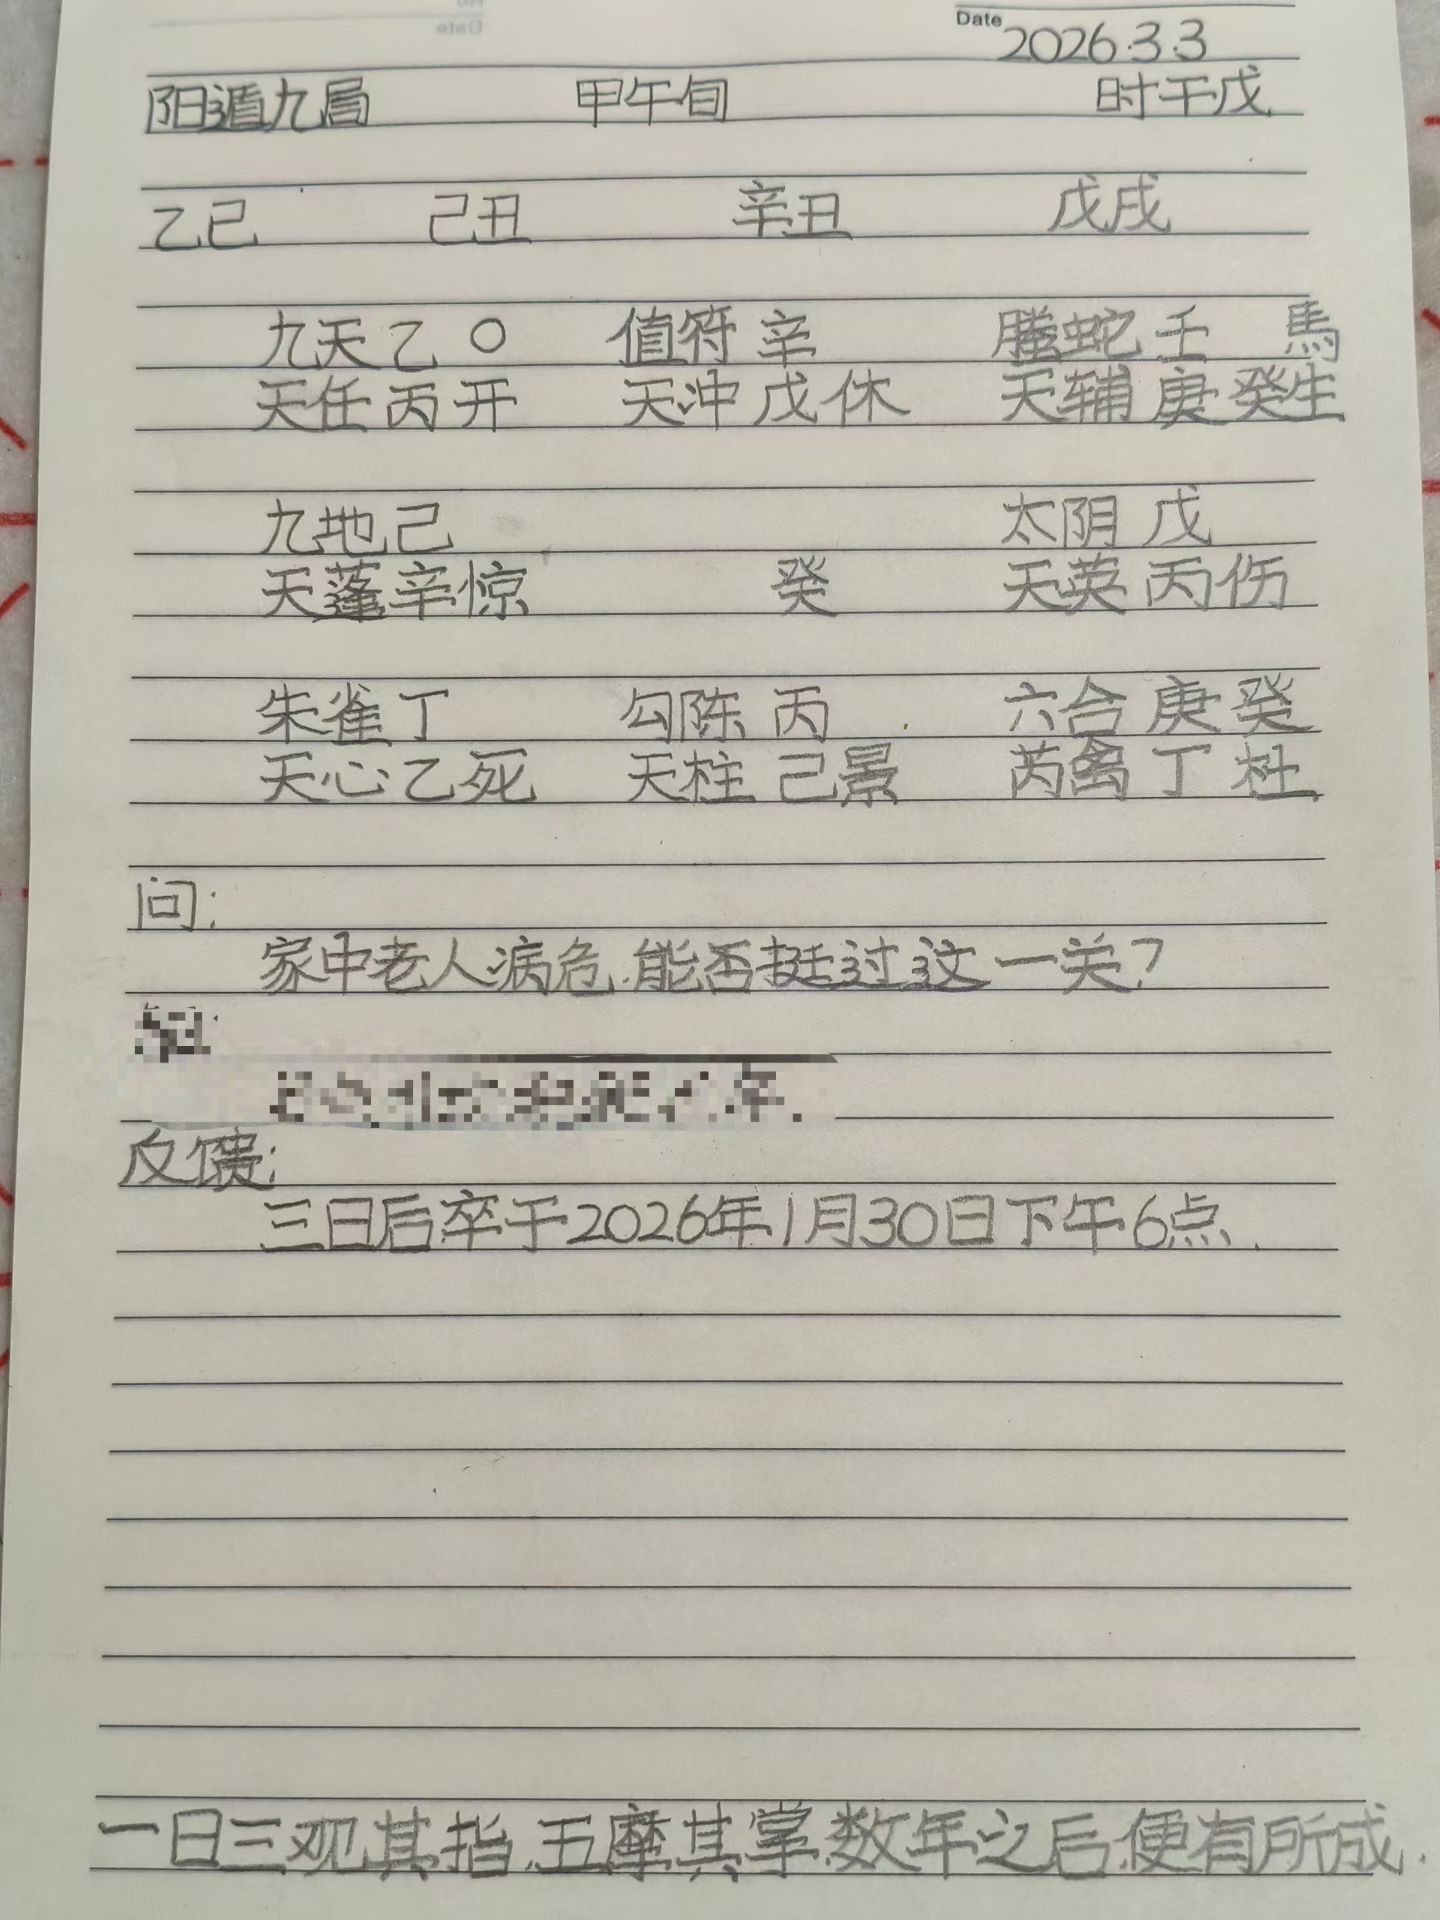 Date 2026.3.3
阳遁九局 甲午旬 时干戊
乙巳 己丑 辛丑 戊戌
九天乙〇 值符辛 螣蛇壬 馬
天任丙开 天冲戊休 天辅庚癸生
九地己 太阴戊
天蓬辛惊 癸 天英丙伤
朱雀丁 勾陈丙 六合庚癸
天心乙死 天柱己景 芮禽丁杜
问:
家中老人病危.能否挺过这一关?
反馈:
三日后卒于2026年1月30日下午6点.
一日三观其指,五摩其掌,数年之后,便有所成.